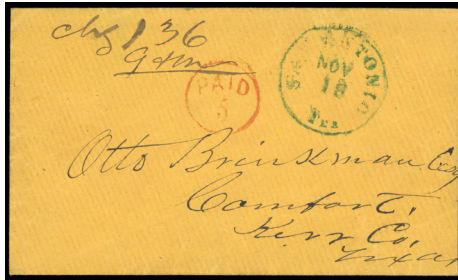 chg 136
SAN ANTONIO
NOV
18
Tex
PAID
5
Otto Brinkman Esq
Comfort,
Kerr Co,
Texas